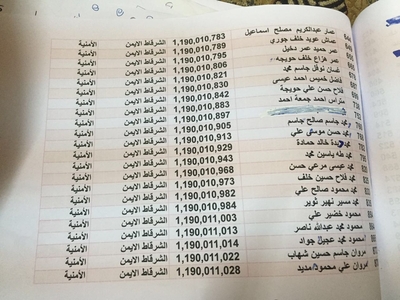 عمار عبدالكريم مصلح اسماعيل 1,190,010,783 الشرقاط الايمن الأمنية
عماش عويد خلف جوري 1,190,010,789 الشرقاط الايمن الأمنية
عمر حميد عمر دخيل 1,190,010,795 الشرقاط الايمن الأمنية
عمر هزاع خلف حويجه 1,190,010,806 الشرقاط الايمن الأمنية
غسان نوفل جاسم محمد 1,190,010,821 الشرقاط الايمن الأمنية
فاضل خميس احمد عيسى 1,190,010,830 الشرقاط الايمن الأمنية
فلاح حسن علي حويجة 1,190,010,842 الشرقاط الايمن الأمنية
متراس احمد جمعة احمد 1,190,010,883 الشرقاط الايمن الأمنية
1,190,010,897 الشرقاط الايمن الأمنية
محمد جاسم صالح جاسم 1,190,010,905 الشرقاط الايمن الأمنية
محمد حسن موسى علي 1,190,010,913 الشرقاط الايمن الأمنية
خالد حمادة 1,190,010,929 الشرقاط الايمن الأمنية
محمد طه ياسين محمد 1,190,010,943 الشرقاط الايمن الأمنية
محمد عيسى مرعي حسن 1,190,010,968 الشرقاط الايمن الأمنية
محمد فلاح حسين خلف 1,190,010,973 الشرقاط الايمن الأمنية
محمود صالح علي 1,190,010,982 الشرقاط الايمن الأمنية
محمد مسير نهير نوير 1,190,010,984 الشرقاط الايمن الأمنية
محمود خضير علي 1,190,011,003 الشرقاط الايمن الأمنية
محمود عبدالله ناصر 1,190,011,013 الشرقاط الايمن الأمنية
محمود عجيل جواد 1,190,011,014 الشرقاط الايمن الأمنية
مروان جاسم حسين شهاب 1,190,011,028 الشرقاط الايمن الأمنية
مروان علي محمود/مديد